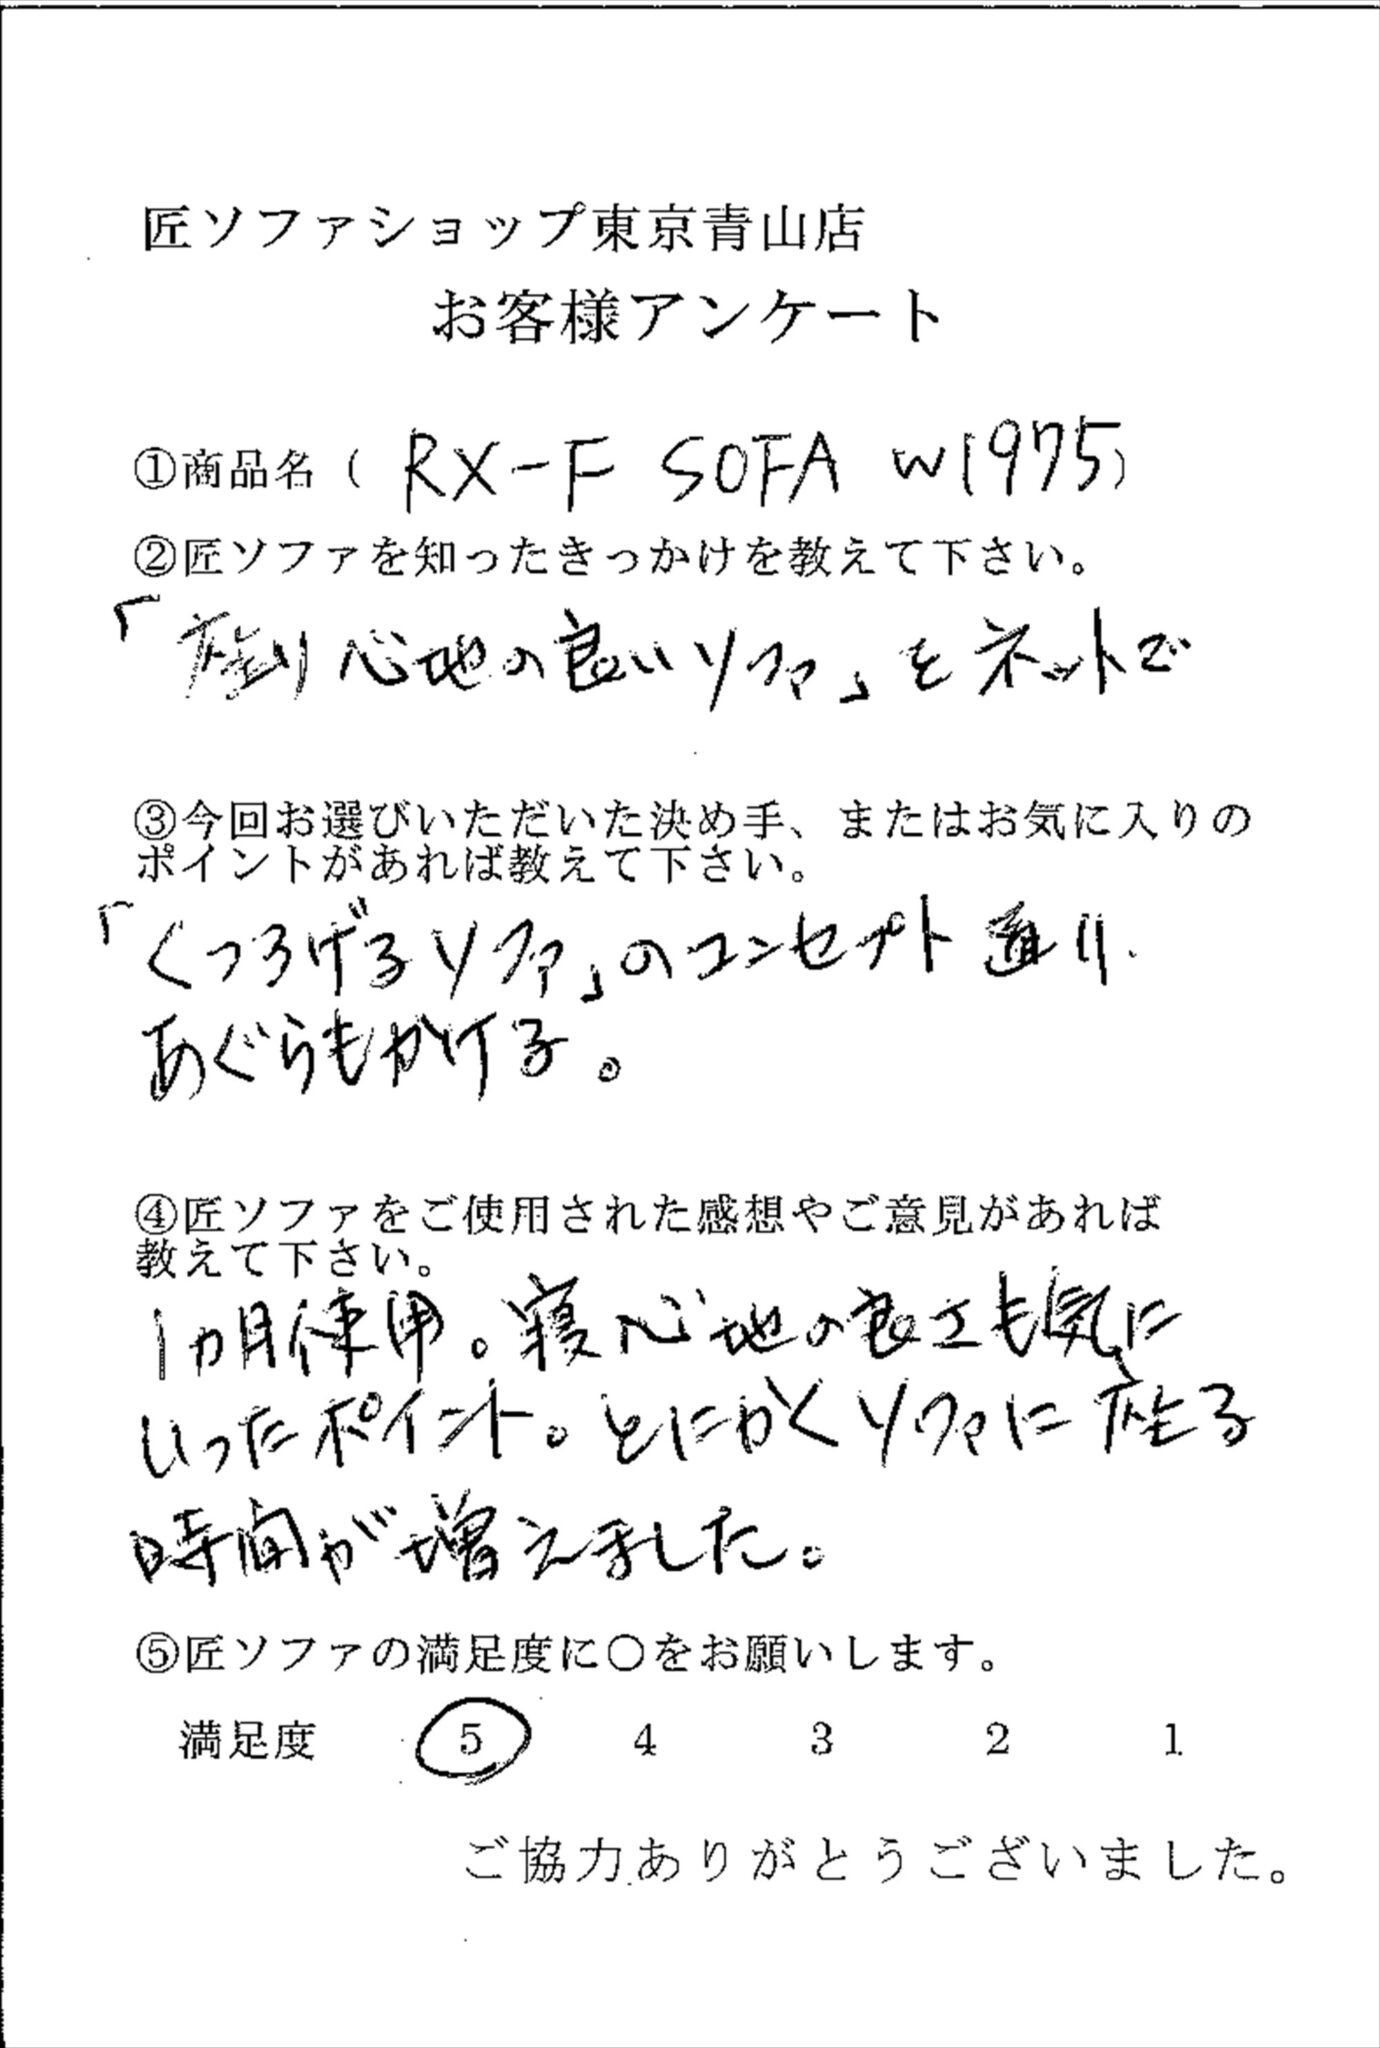 匠ソファショップ東京青山店
お客様アンケート
①商品名（ RX-F SOFA W1975）
②匠ソファを知ったきっかけを教えて下さい。
「座り心地の良いソファ」をネットで
③今回お選びいただいた決め手、またはお気に入りの
ポイントがあれば教えて下さい。
「くつろげるソファ」のコンセプト通り、
あぐらもかける。
④匠ソファをご使用された感想やご意見があれば
教えて下さい。
1ヵ月使用。寝心地の良さも気に
いったポイント。とにかくソファに座る
時間が増えました。
⑤匠ソファの満足度に〇をお願いします。
満足度 5 4 3 2 1
ご協力ありがとうございました。